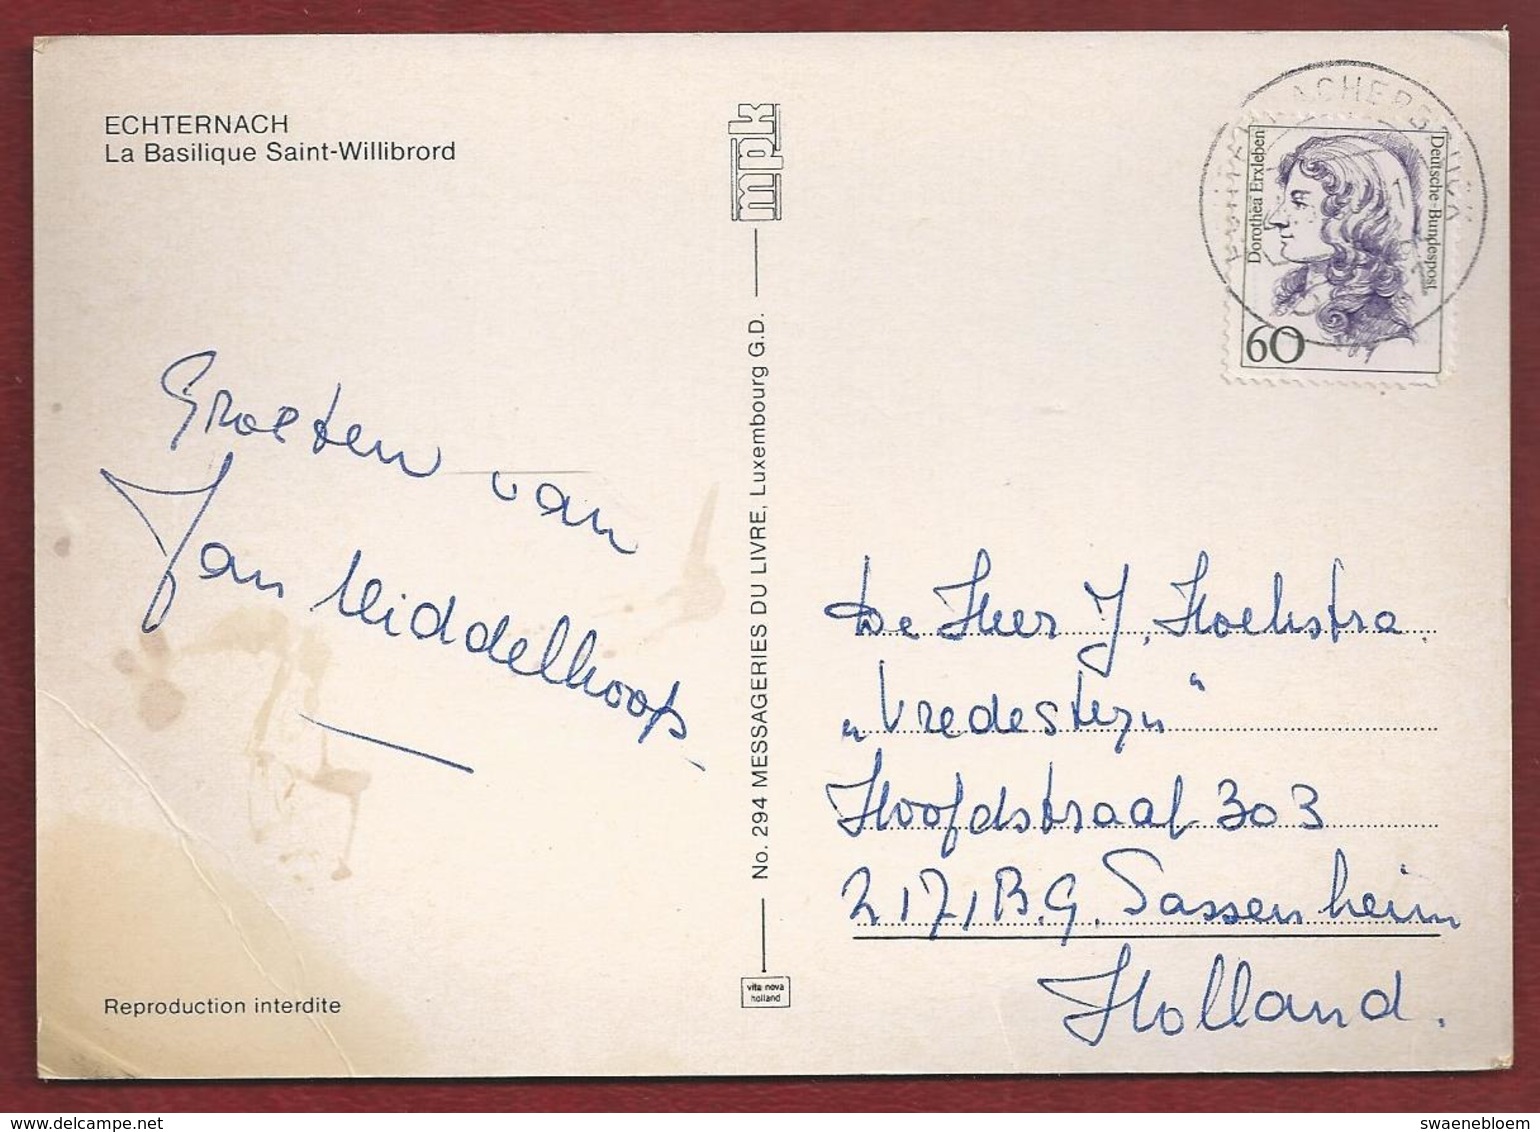 ECHTERNACH
La Basilique Saint-Willibrord
mpk
Groeten van
Jan Middelhoop
Reproduction interdite
No. 294 MESSAGERIES DU LIVRE, Luxembourg G.D.
vita nova
holland
Dorothea Erxleben
Deutsche Bundespost
60
De Heer J. Hoekstra
"Vredesteyn"
Hoofdstraat 303
2171 B.G. Sassenheim
Holland.
www.delcampe.net
swaenebloem